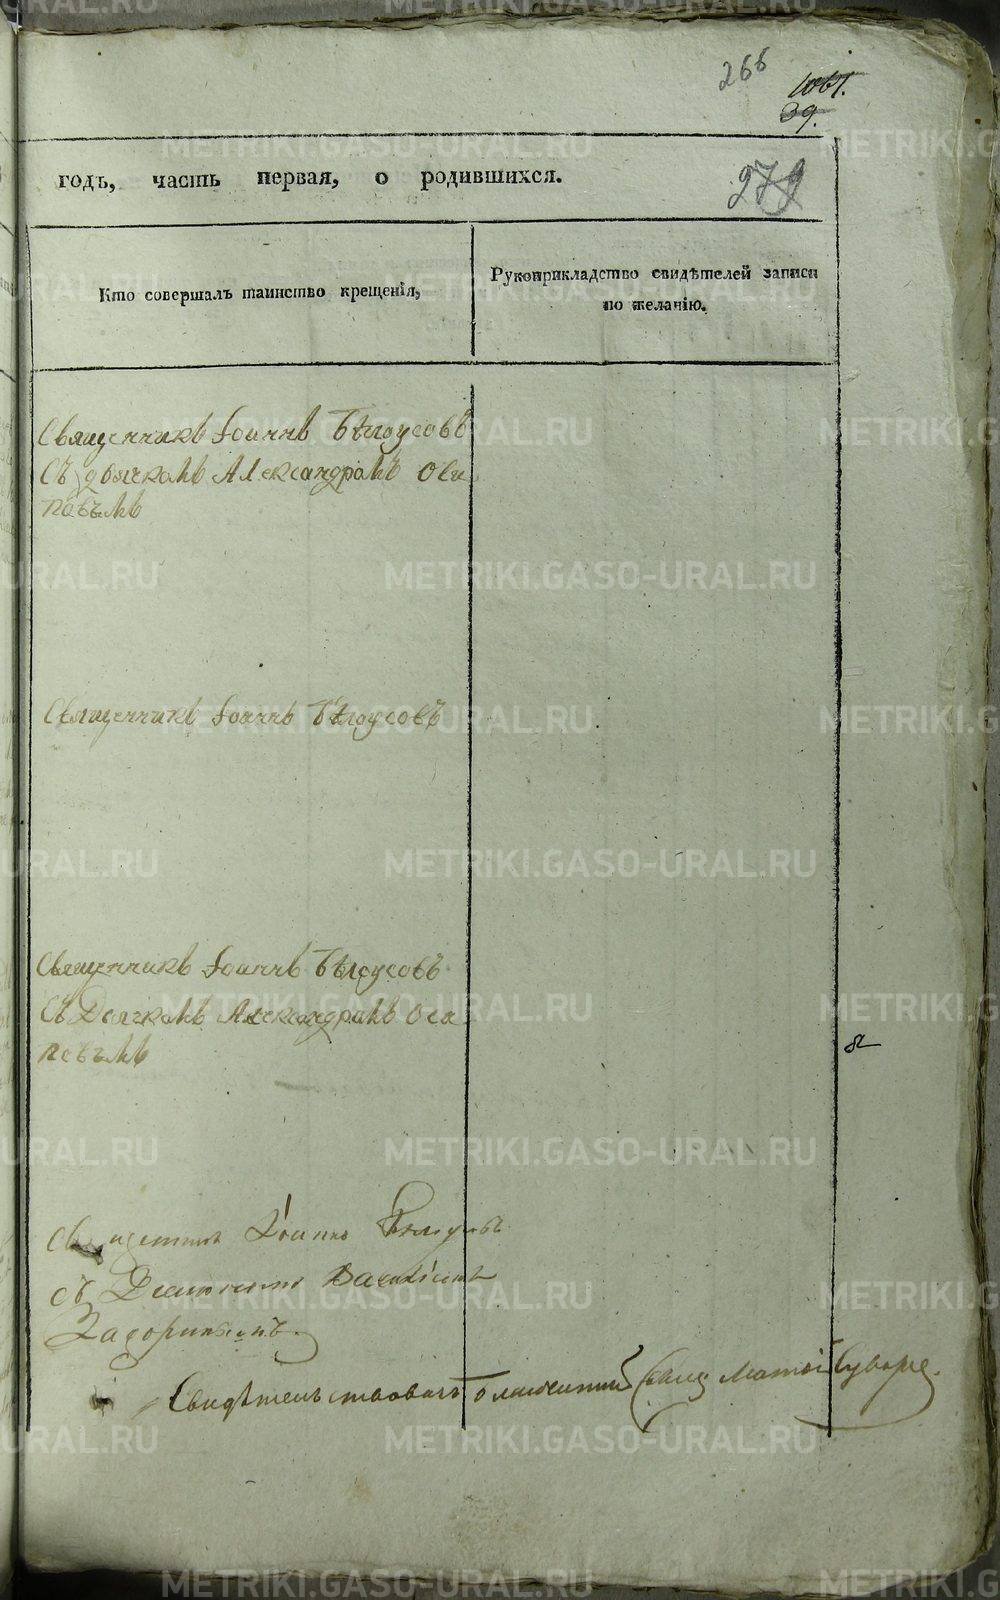 266
1061.
39.
279
годъ, часть первая, о родившихся.
Кто совершалъ таинство крещенія,
Рукоприкладство свидѣтелей записи
по желанію.
Священникъ Іоаннъ Бѣлоусовъ
Съ дьячкомъ Александромъ Оси
повымъ
Священникъ Іоаннъ Бѣлоусовъ
Священникъ Іоаннъ Бѣлоусовъ
Съ Дьячкомъ Александромъ Оси
повымъ
Священникъ Іоаннъ Бѣлоусовъ
съ
Задоринымъ.
Свидѣтельствовалъ Благочинный Свящ
METRIKI.GASO-URAL.RU